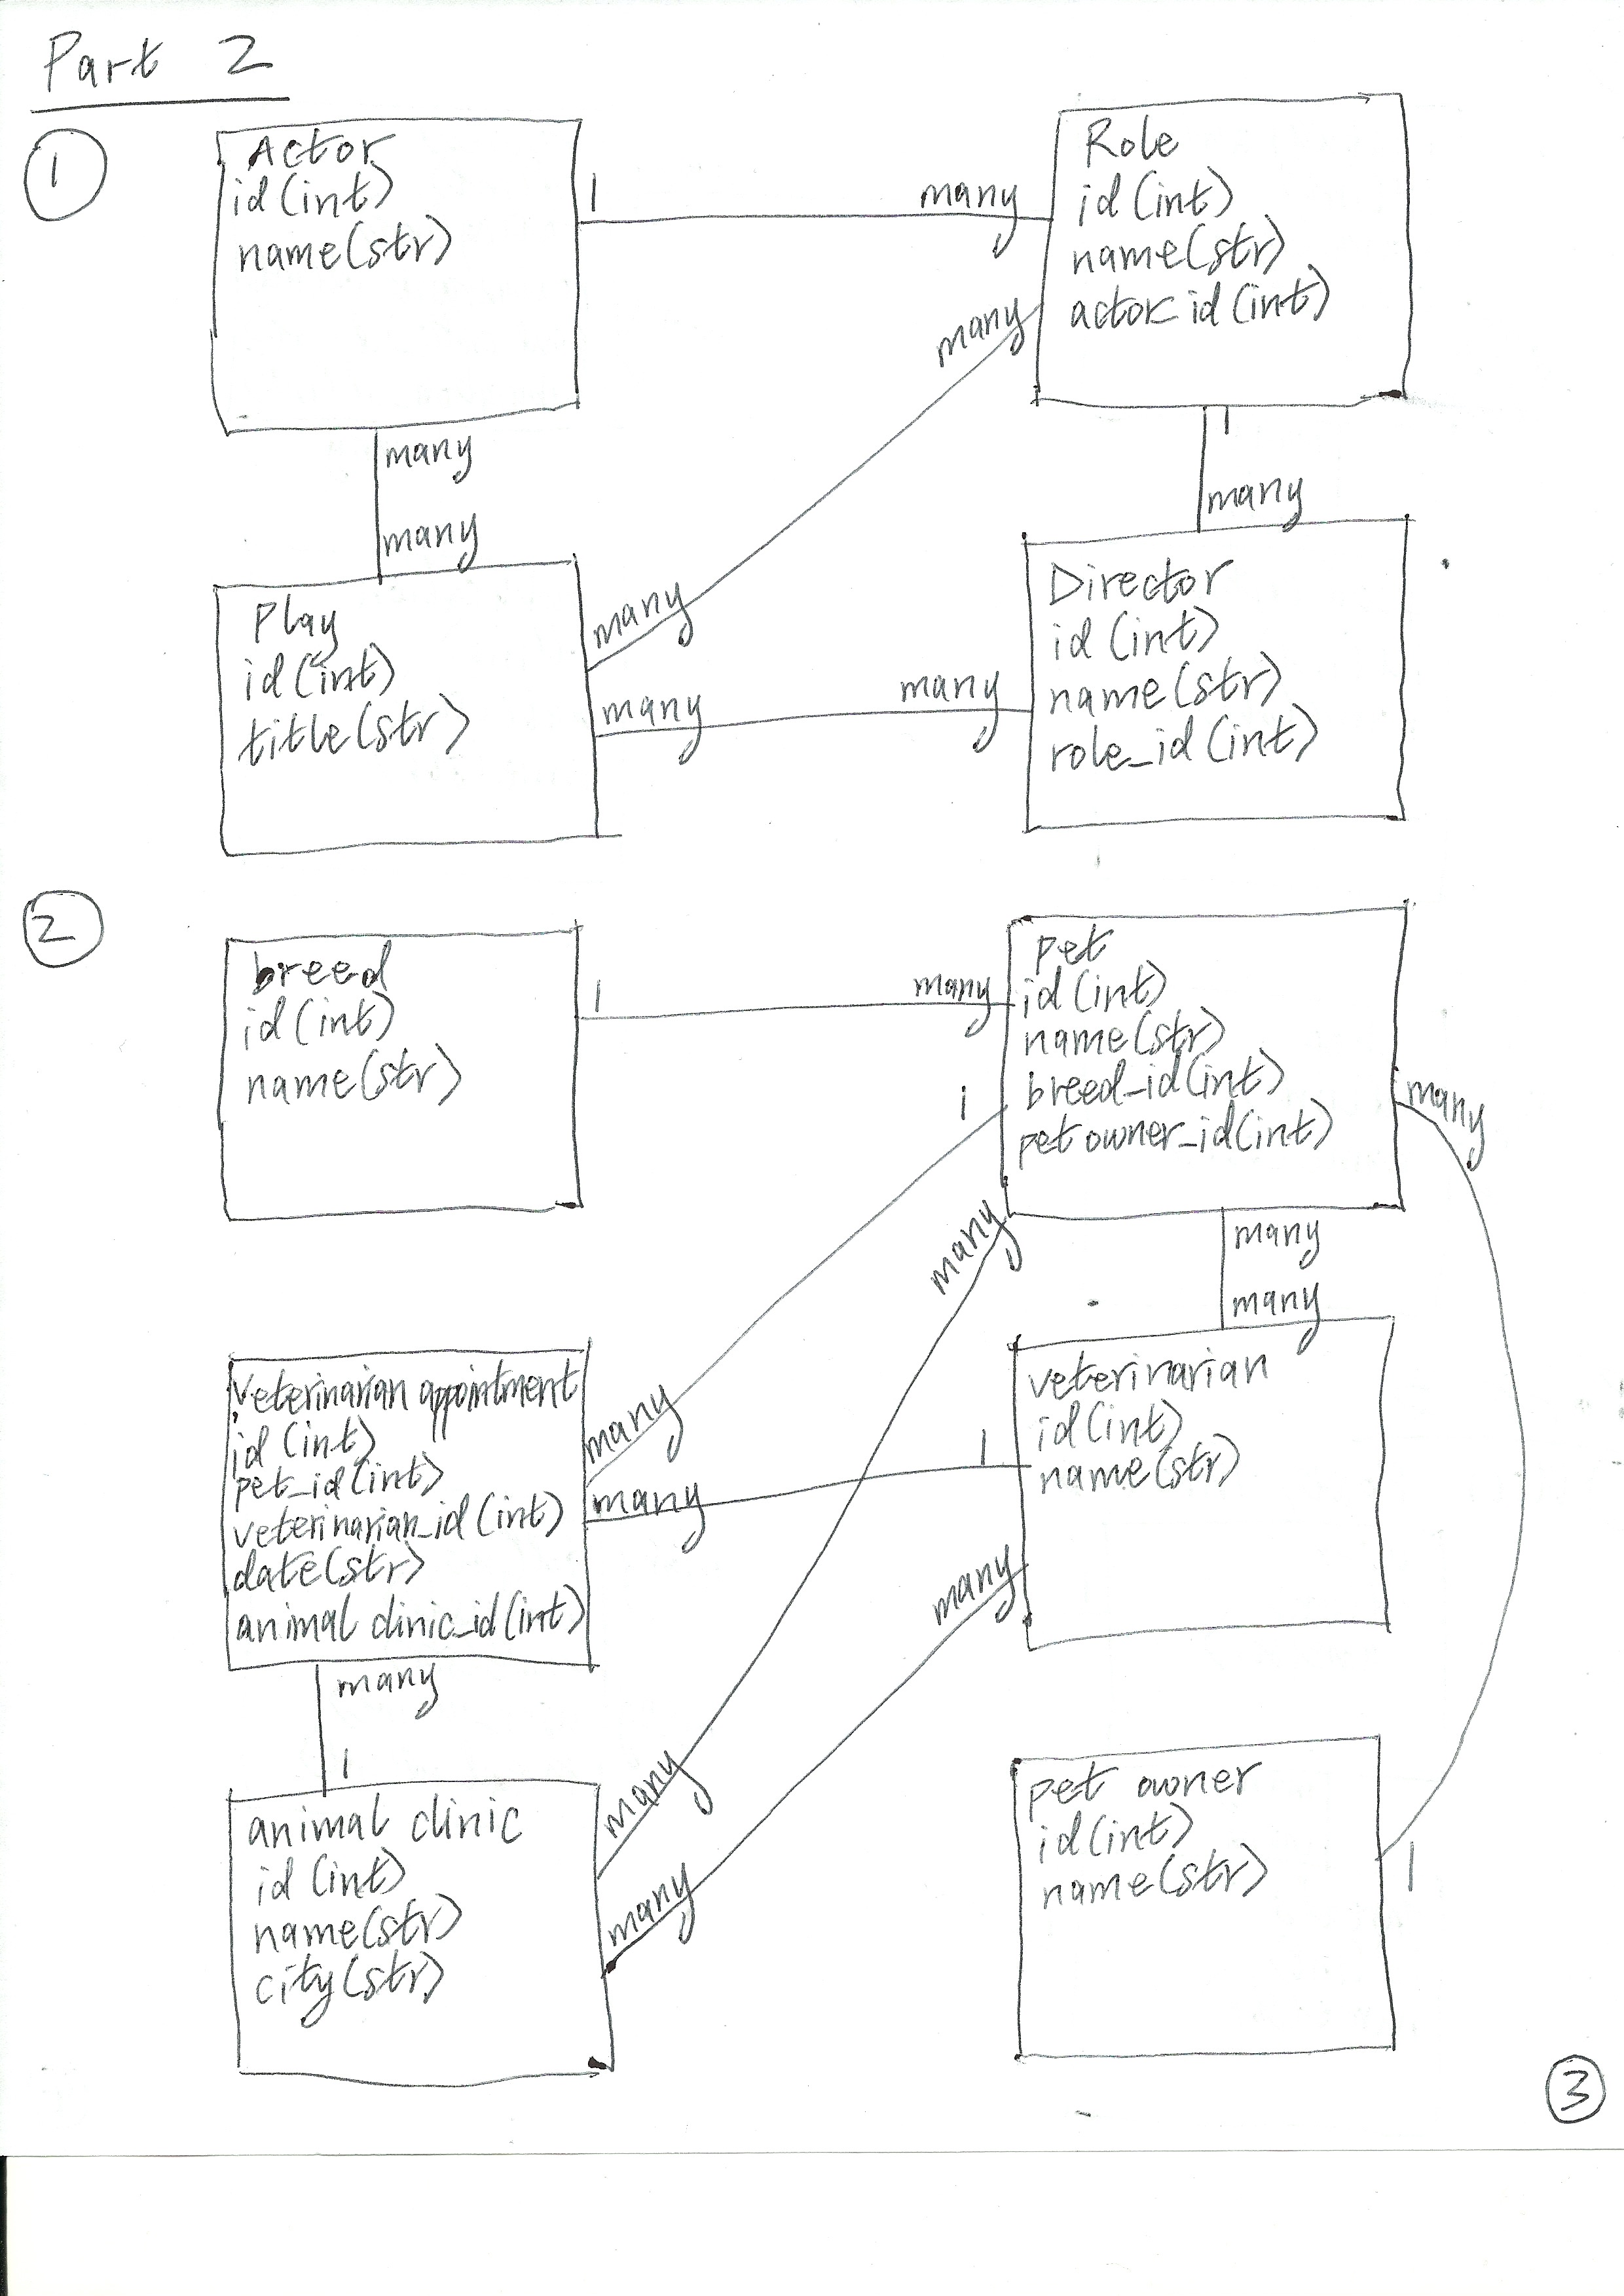 Part 2
1
Actor
id (int)
name (str)
1
many
Role
id (int)
name (str)
actor id (int)
many
many
many
1
many
Play
id (int)
title (str)
many
many
many
Director
id (int)
name (str)
role_id (int)
2
breed
id (int)
name (str)
1
many
pet
id (int)
name (str)
breed_id (int)
pet owner_id (int)
1
many
many
many
many
veterinarian appointment
id (int)
pet_id (int)
veterinarian_id (int)
date (str)
animal clinic_id (int)
many
many
1
veterinarian
id (int)
name (str)
many
many
1
animal clinic
id (int)
name (str)
city (str)
many
many
pet owner
id (int)
name (str)
1
3